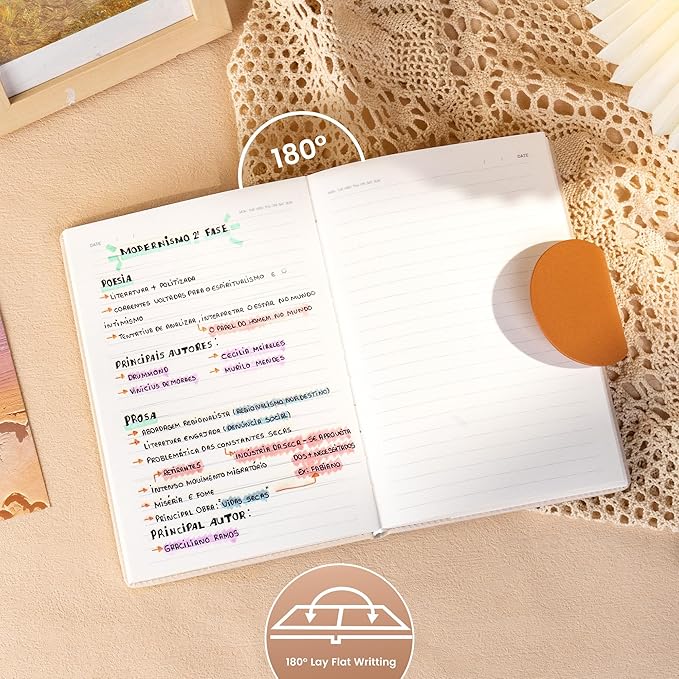 180°
DATE
MODERNISMO 2ª FASE
POESIA
→ LITERATURA + POLITIZADA
→ CORRENTES VOLTADAS PARA O ESPIRITUALISMO E O
INTIMISMO
→ TENTATIVA DE ANALIZAR, INTERPRETAR O ESTAR NO MUNDO
↳ O PAPEL DO HOMEM NO MUNDO
PRINCIPAIS AUTORES:
→ DRUMMOND → CECÍLIA MEIRELES
→ VINICIUS DE MORAES → MURILO MENDES
PROSA
→ ABORDAGEM REGIONALISTA (REGIONALISMO NORDESTINO)
→ LITERATURA ENGAJADA (DENÚNCIA SOCIAL)
→ PROBLEMÁTICA DAS CONSTANTES SECAS
→ INDÚSTRIA DA SECA - SE APROVEITA
→ RETIRANTES DOS + NECESSITADOS
→ INTENSO MOVIMENTO MIGRATÓRIO EX: FABIANO
→ MISÉRIA E FOME
→ PRINCIPAL OBRA: "VIDAS SECAS"
PRINCIPAL AUTOR:
→ GRACILIANO RAMOS
/ / DATE
180° Lay Flat Writting